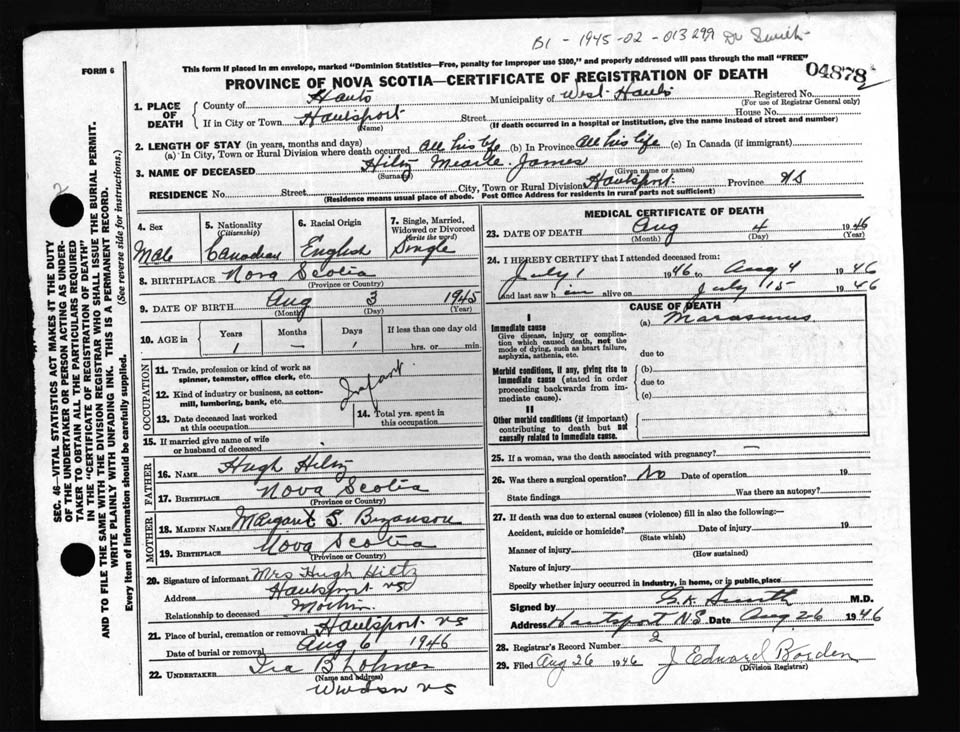 B1 - 1945-02-013299 Dr Smith
FORM 6
This form if placed in an envelope, marked "Dominion Statistics—Free, penalty for improper use $300," and properly addressed will pass through the mail "FREE"
04878
PROVINCE OF NOVA SCOTIA—CERTIFICATE OF REGISTRATION OF DEATH
1. PLACE OF DEATH
County of Hants Municipality of West Hants Registered No.
(For use of Registrar General only)
If in City or Town Hantsport Street House No.
(Name) (If death occurred in a hospital or institution, give the name instead of street and number)
2. LENGTH OF STAY (in years, months and days)
(a) In City, Town or Rural Division where death occurred All his life (b) In Province All his life (c) In Canada (if immigrant)
3. NAME OF DECEASED Hiltz James
(Surname) (Given name or names)
RESIDENCE No. Street City, Town or Rural Division Hantsport Province NS
(Residence means usual place of abode. Post Office Address for residents in rural parts not sufficient)
SEC. 46—VITAL STATISTICS ACT MAKES IT THE DUTY
OF THE UNDERTAKER OR PERSON ACTING AS UNDER-
TAKER TO OBTAIN ALL THE PARTICULARS REQUIRED
IN THE "CERTIFICATE OF REGISTRATION OF DEATH"
AND TO FILE THE SAME WITH THE DIVISION REGISTRAR WHO SHALL ISSUE THE BURIAL PERMIT.
WRITE PLAINLY WITH UNFADING INK. THIS IS A PERMANENT RECORD.
Every item of information should be carefully supplied. (See reverse side for instructions.)
2
4. Sex
Male
5. Nationality
(Citizenship)
Canadian
6. Racial Origin
English
7. Single, Married,
Widowed or Divorced
(Write the word)
Single
8. BIRTHPLACE Nova Scotia
(Province or Country)
9. DATE OF BIRTH Aug 3 1945
(Month) (Day) (Year)
10. AGE in
Years Months Days If less than one day old
1 — 1 hrs. or min.
OCCUPATION
11. Trade, profession or kind of work as
spinner, teamster, office clerk, etc.
12. Kind of industry or business, as cotton-
mill, lumbering, bank, etc.
Infant
13. Date deceased last worked
at this occupation
14. Total yrs. spent in
this occupation
15. If married give name of wife
or husband of deceased
FATHER
16. NAME Hugh Hiltz
17. BIRTHPLACE Nova Scotia
(Province or Country)
MOTHER
18. MAIDEN NAME Margaret S. Bezanson
19. BIRTHPLACE Nova Scotia
(Province or Country)
20. Signature of informant Mrs Hugh Hiltz
Address Hantsport NS
Relationship to deceased Mother
21. Place of burial, cremation or removal Hantsport NS
Date of burial or removal Aug 6 1946
22. UNDERTAKER Ira B Lohnes
(Name and address)
Windsor NS
MEDICAL CERTIFICATE OF DEATH
23. DATE OF DEATH Aug 4 1946
(Month) (Day) (Year)
24. I HEREBY CERTIFY that I attended deceased from:
July 1 1946 to Aug 4 1946
and last saw him alive on July 15 1946
CAUSE OF DEATH
I
Immediate cause
Give disease, injury or complica-
tion which caused death, not the
mode of dying, such as heart failure,
asphyxia, asthenia, etc.
(a) Marasmus
due to
Morbid conditions, if any, giving rise to
immediate cause (stated in order
proceeding backwards from im-
mediate cause).
(b)
due to
(c)
II
Other morbid conditions (if important)
contributing to death but not
causally related to immediate cause.
25. If a woman, was the death associated with pregnancy? —
26. Was there a surgical operation? No Date of operation 19
State findings Was there an autopsy?
27. If death was due to external causes (violence) fill in also the following:—
Accident, suicide or homicide? Date of injury 19
(State which)
Manner of injury
(How sustained)
Nature of injury
Specify whether injury occurred in industry, in home, or in public place
Signed by Smith M.D.
Address Hantsport N.S. Date Aug 26 1946
28. Registrar's Record Number 2
29. Filed Aug 26 1946 J Edward Borden
(Division Registrar)